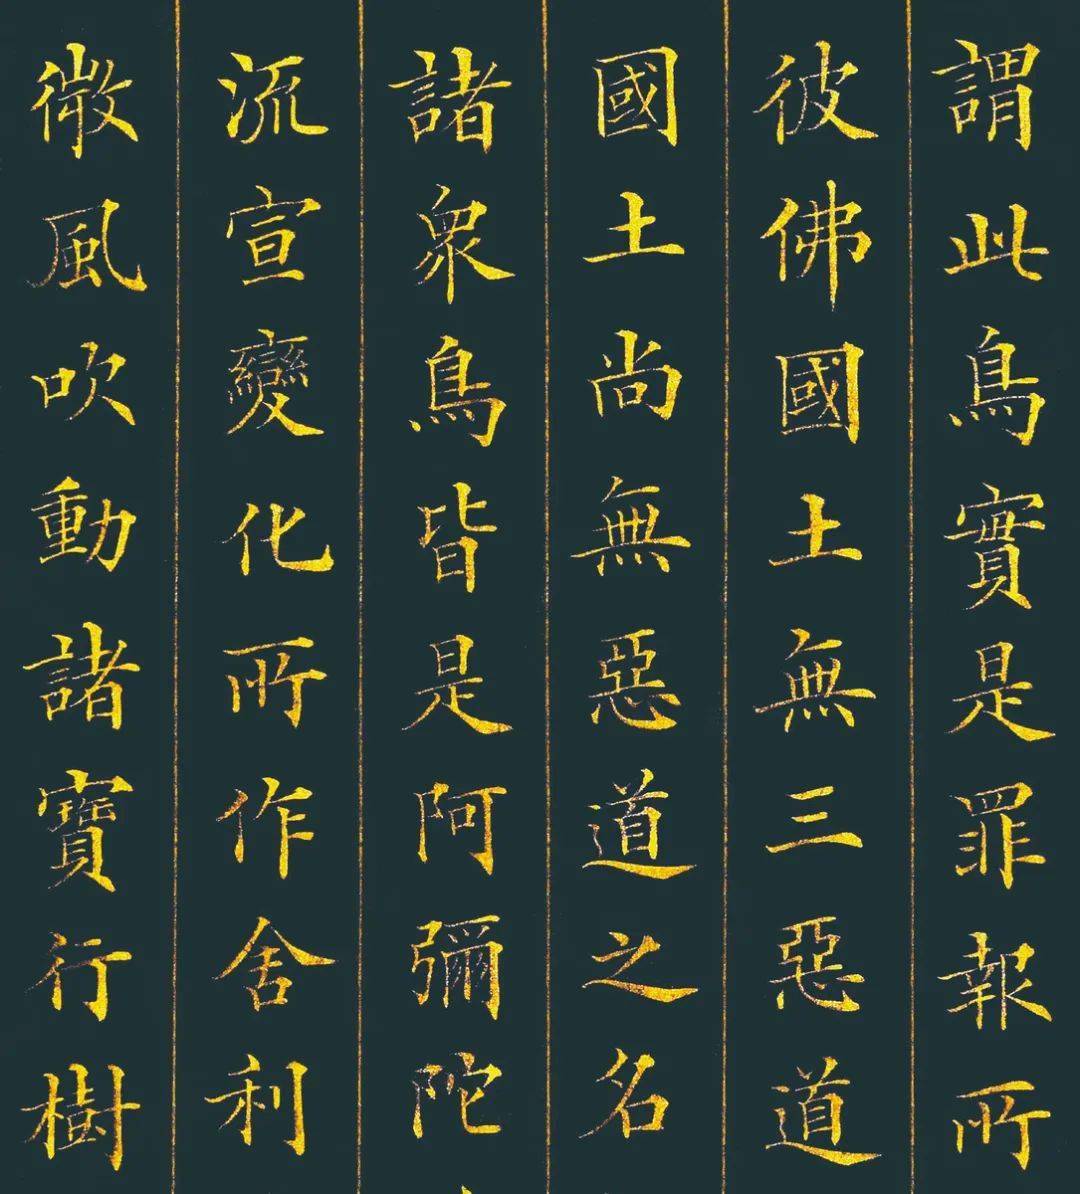 謂此鳥實是罪報所
彼佛國土無三惡道
國土尚無惡道之名
諸眾鳥皆是阿彌陀
流宣變化所作舍利
微風吹動諸寶行樹